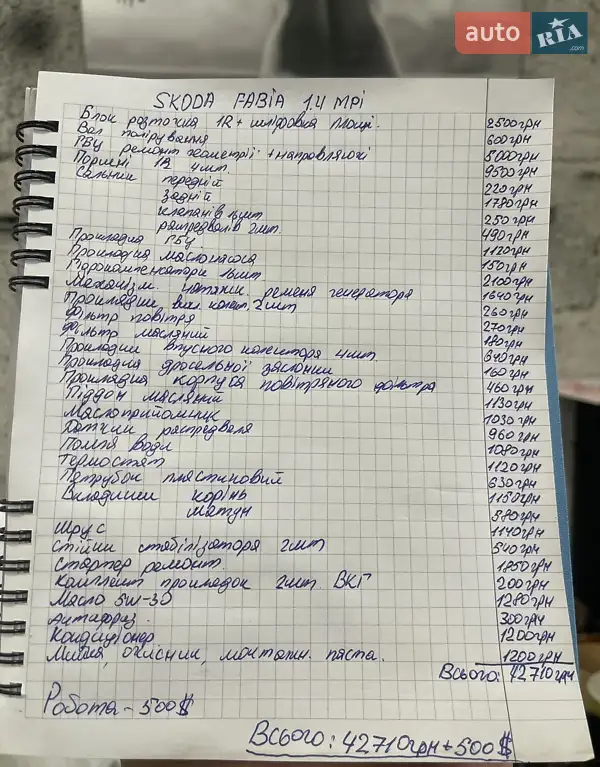 auto RIA .com
SKODA FABIA 1.4 MPI
Блок розточка 1R + шліфовка площі. 2500грн
Вал полірування 600грн
РБЦ ремонт геометрії + направляючі 5000грн
Поршні 1R 4шт. 9500грн
Сальник передній 220грн
задній 1780грн
клапанів 16шт 250грн
распредвалів 2шт. 490грн
Прокладка ГБЦ 1120грн
Прокладка маслонасоса 150грн
Гідрокомпенсатори 16шт 2100грн
Механізм. натяжн. ременя генератора 1640грн
Прокладки вих. колект. 2шт 260грн
Фільтр повітря 270грн
Фільтр масляний 180грн
Прокладки впускного колектора 4шт. 340грн
Прокладка дросельної заслонки 160грн
Прокладка корпуса повітряного фільтра 460грн
Піддон масляний 1130грн
Маслоприйомник 1030грн
Датчик распредвала 960грн
Помпа води 1080грн
Термостат 1120грн
Патрубок пластиковий 630грн
Вкладиши корінь 1160грн
шатун 580грн
Шрус 1140грн
Стійки стабілізатора 2шт 540грн
Стартер ремонт. 1850грн
Комплект прокладок 2шт. ВКГ 200грн
Масло 5W-30 1280грн
Антифриз 300грн
Кондиціонер 1200грн
Мийка, очисник, монтажн. паста. 1200грн
Всього: 42710грн
Робота - 500$
Всього: 42710грн + 500$